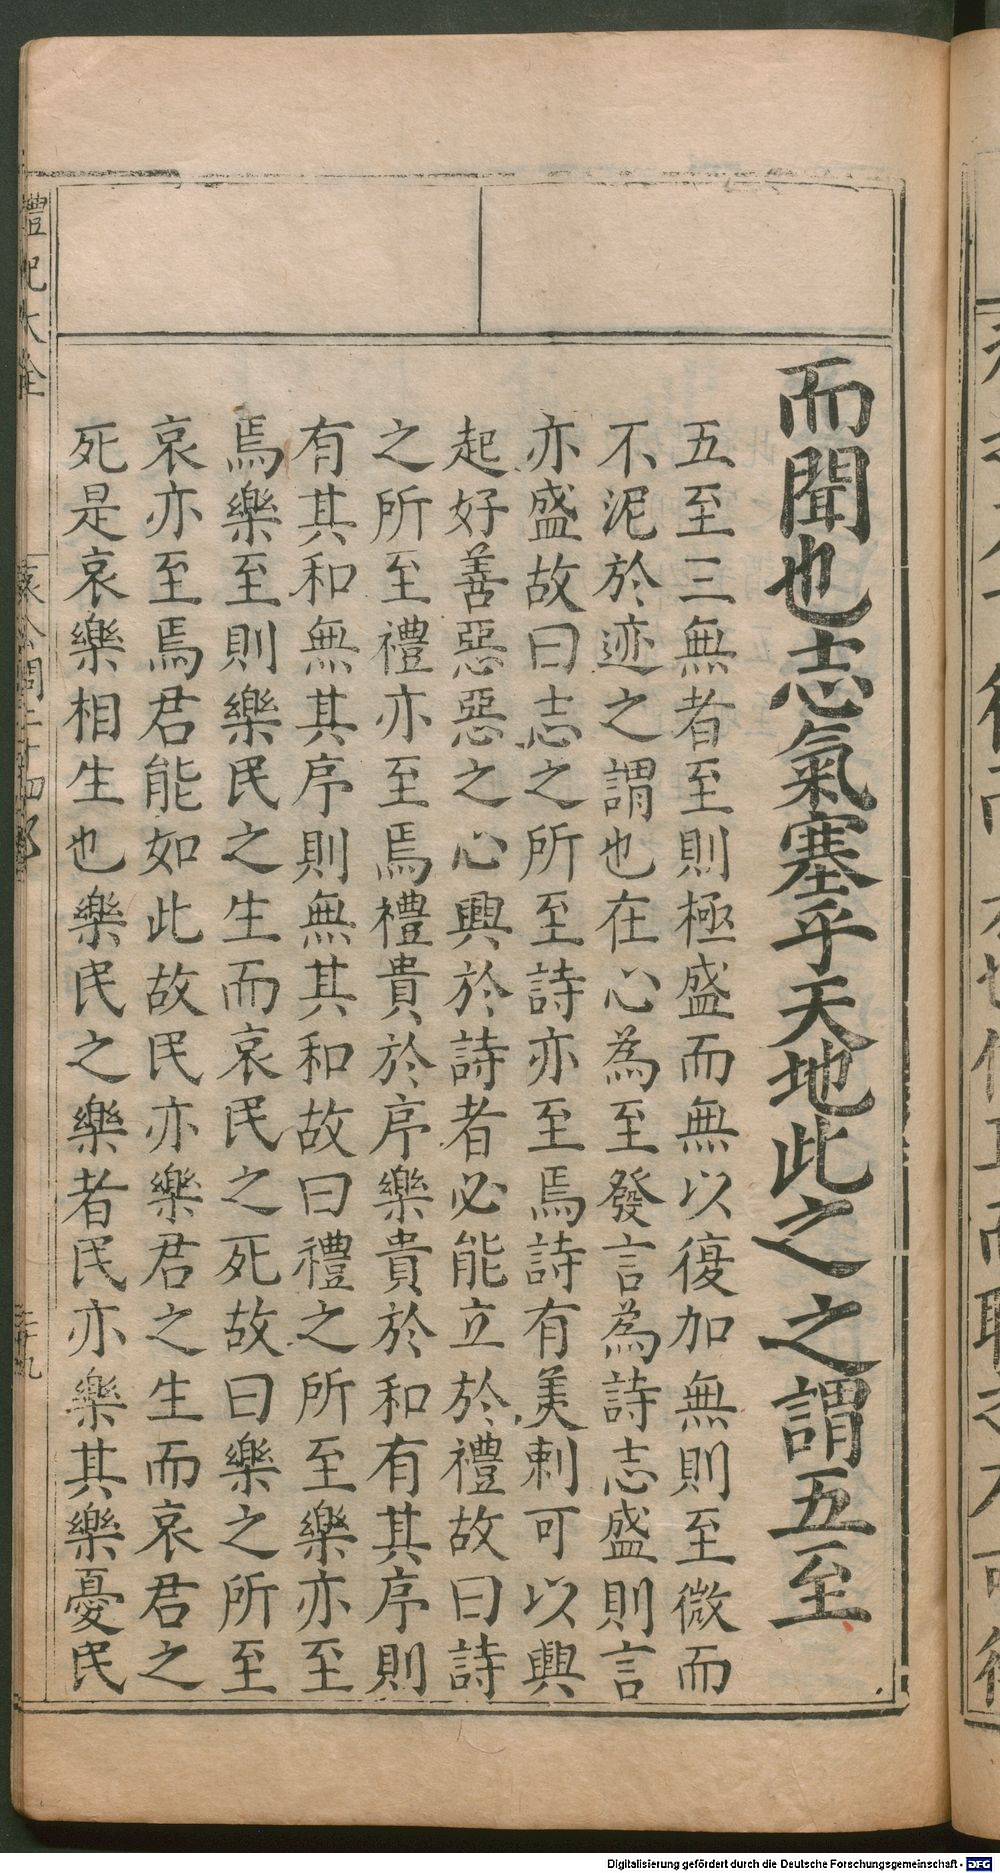 而聞也志氣塞乎天地此之之謂五至
五至三無者至則極盛而無以復加無則至微而
不泥於迹之謂也在心為至發言為詩志盛則言
亦盛故曰志之所至詩亦至焉詩有美刺可以興
起好善惡惡之心興於詩者必能立於禮故曰詩
之所至禮亦至焉禮貴於序樂貴於和有其序則
有其和無其序則無其和故曰禮之所至樂亦至
焉樂至則樂民之生而哀民之死故曰樂之所至
哀亦至焉君能如此故民亦樂君之生而哀君之
死是哀樂相生也樂民之樂者民亦樂其樂憂民
禮記大全
Digitalisierung gefördert durch die Deutsche Forschungsgemeinschaft - DFG